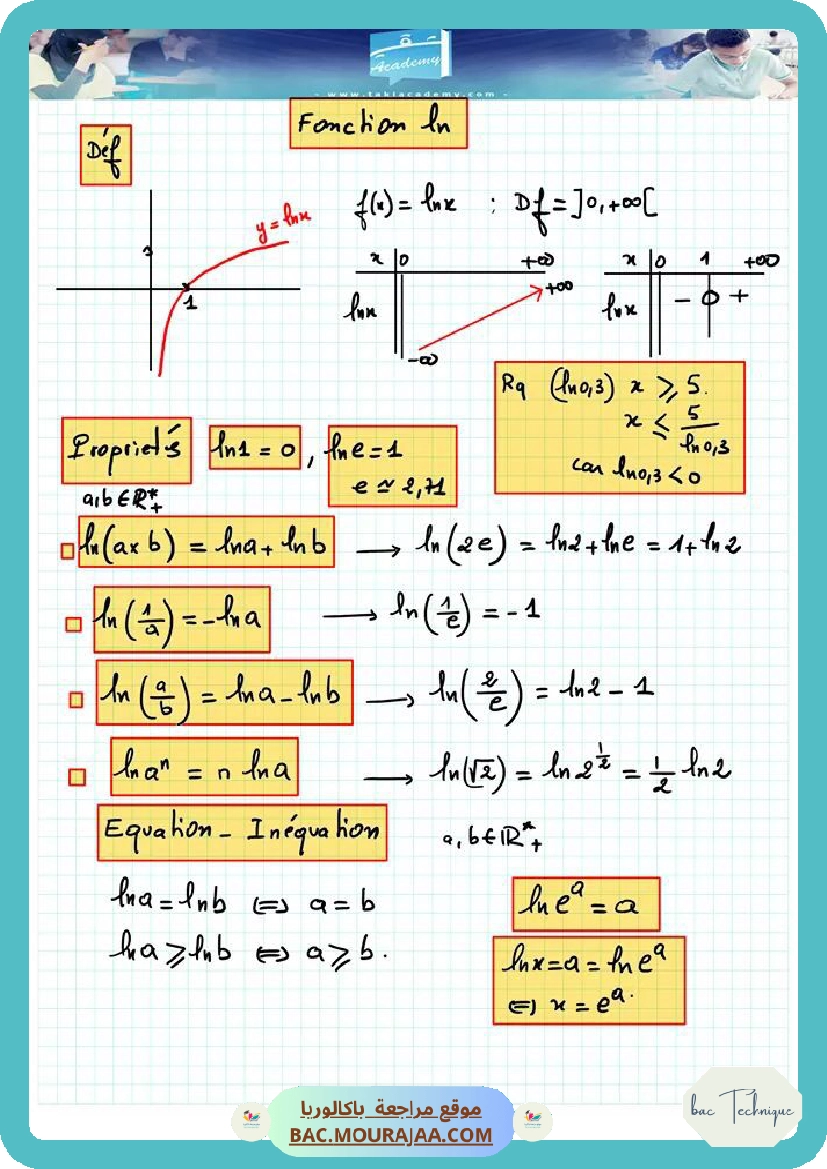 Academy
- www.takiacademy.com -
Fonction ln
Déf
f(x) = lnx : Df = ]0,+∞[
y = lnx
1
x 0 +∞
lnx -∞ +∞
x 0 1 +∞
lnx - 0 +
Rq (ln0,3) x ⩾ 5.
x ⩽ 5/ln0,3
car ln0,3 < 0
Propriétés ln1 = 0 , lne = 1
e ≃ 2,71
a,b ∈ ℝ*₊
ln(a×b) = lna + lnb → ln(2e) = ln2 + lne = 1 + ln2
ln(1/a) = -lna → ln(1/e) = -1
ln(a/b) = lna - lnb → ln(2/e) = ln2 - 1
lnaⁿ = n lna → ln(√2) = ln2^(1/2) = 1/2 ln2
Equation - Inéquation a,b ∈ ℝ*₊
lna = lnb ⟺ a = b
lna ⩾ lnb ⟺ a ⩾ b.
lneᵃ = a
lnx = a = lneᵃ
⟺ x = eᵃ.
موقع مراجعة باكالوريا
BAC.MOURAJAA.COM
bac Technique